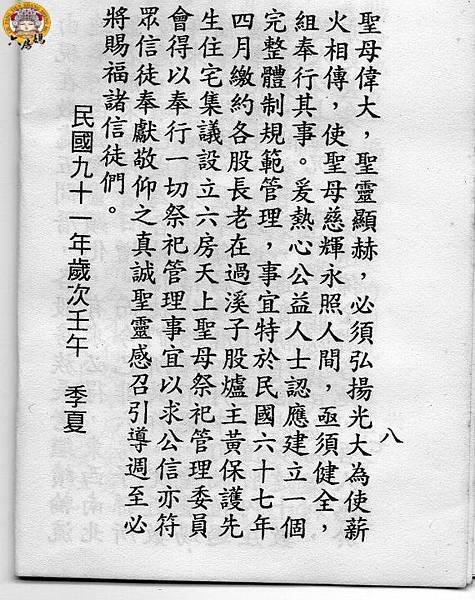 聖母偉大，聖靈顯赫，必須弘揚光大為使薪
火相傳，使聖母慈輝永照人間，亟須健全，
組奉行其事。爰熱心公益人士認應建立一個
完整體制規範管理，事宜特於民國六十七年
四月繳約各股長老在過溪子股爐主黃保護先
生住宅集議設立六房天上聖母祭祀管理委員
會得以奉行一切祭祀管理事宜以求公信亦符
眾信徒奉獻敬仰之真誠聖靈感召引導週至必
將賜福諸信徒們。
民國九十一年歲次壬午　季夏
八
六房媽